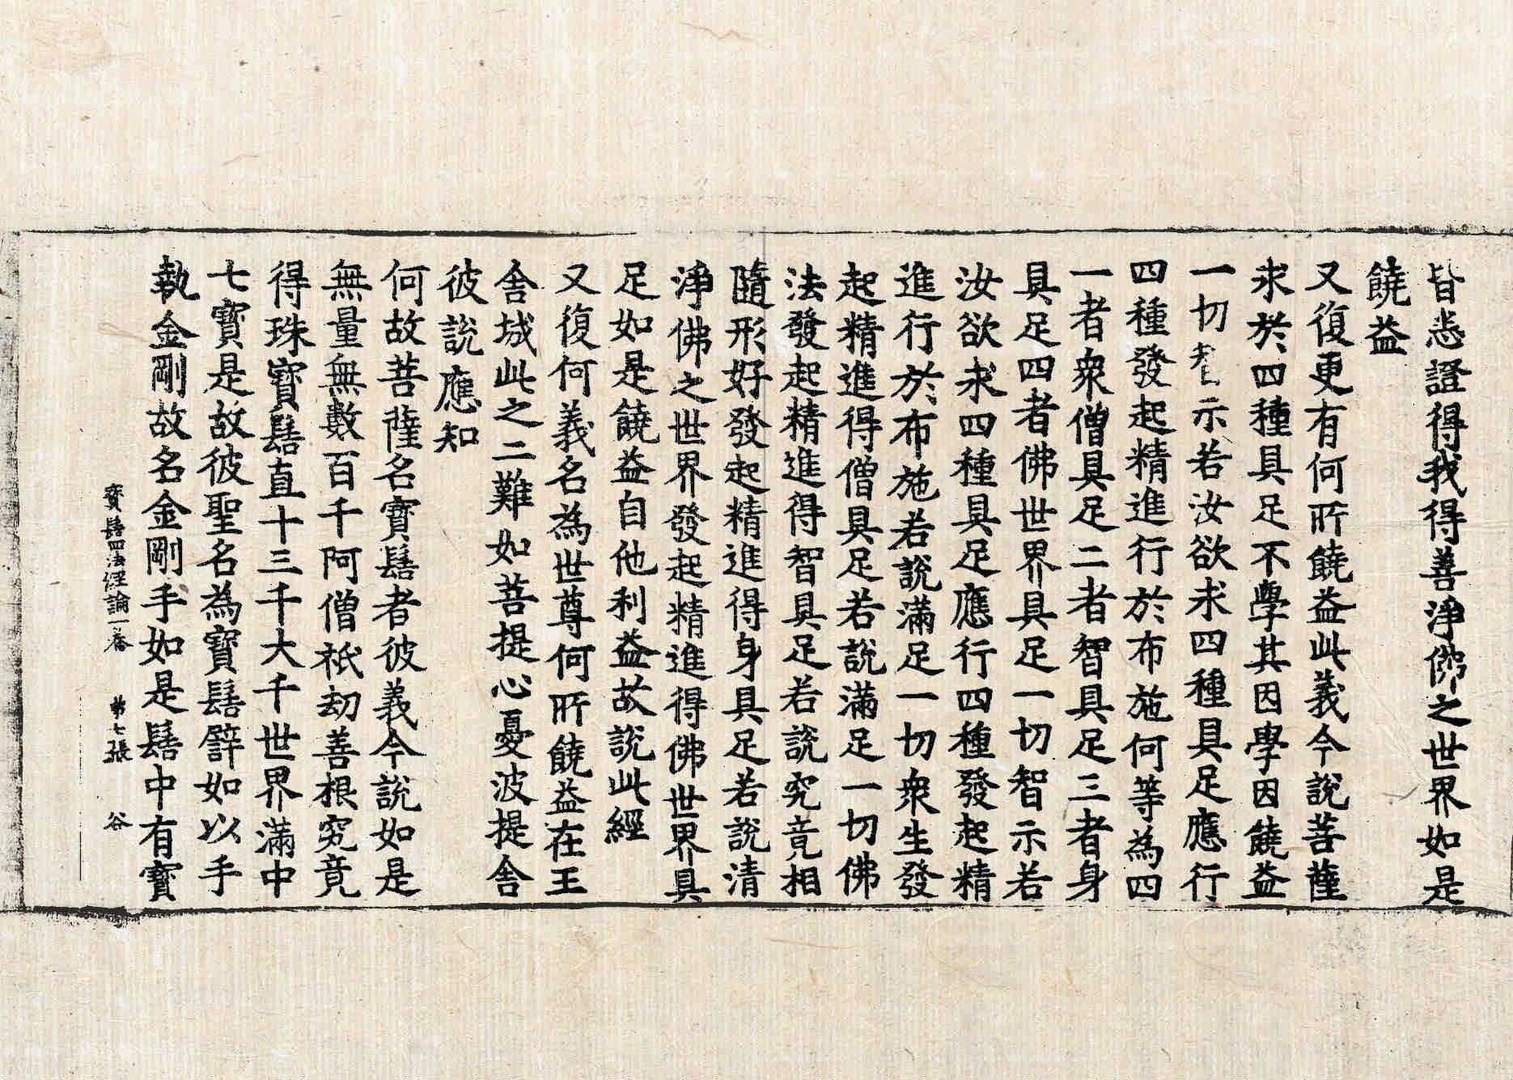 皆悉證得我得善淨佛之世界如是
饒益
又復更有何所饒益此義今說菩薩
求於四種具足不學其因學因饒益
一切示若汝欲求四種具足應行
四種發起精進行於布施何等為四
一者衆僧具足二者智具足三者身
具足四者佛世界具足一切智示若
汝欲求四種具足應行四種發起精
進行於布施若說滿足一切衆生發
起精進得僧具足若說滿足一切佛
法發起精進得智具足若說究竟相
隨形好發起精進得身具足若說清
淨佛之世界發起精進得佛世界具
足如是饒益自他利益故說此經
又復何義名為世尊何所饒益在王
舍城此之二難如菩提心憂波提舍
彼說應知
何故菩薩名寶髻者彼義今說如是
無量無數百千阿僧祇劫善根究竟
得珠寶髻直十三千大千世界滿中
七寶是故彼聖名為寶髻譬如以手
執金剛故名金剛手如是髻中有寶
寶髻四法經論一卷 第七張 谷